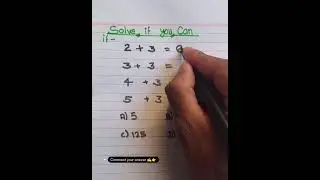 Solve if you Can
if-
2 + 3 =
3 + 3 =
4 + 3
5 + 3
A) 5
C) 125
Comment your answer